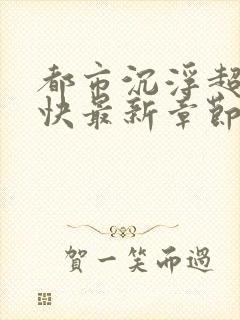 都市沉浮超
快最新章節
賀一笑而過